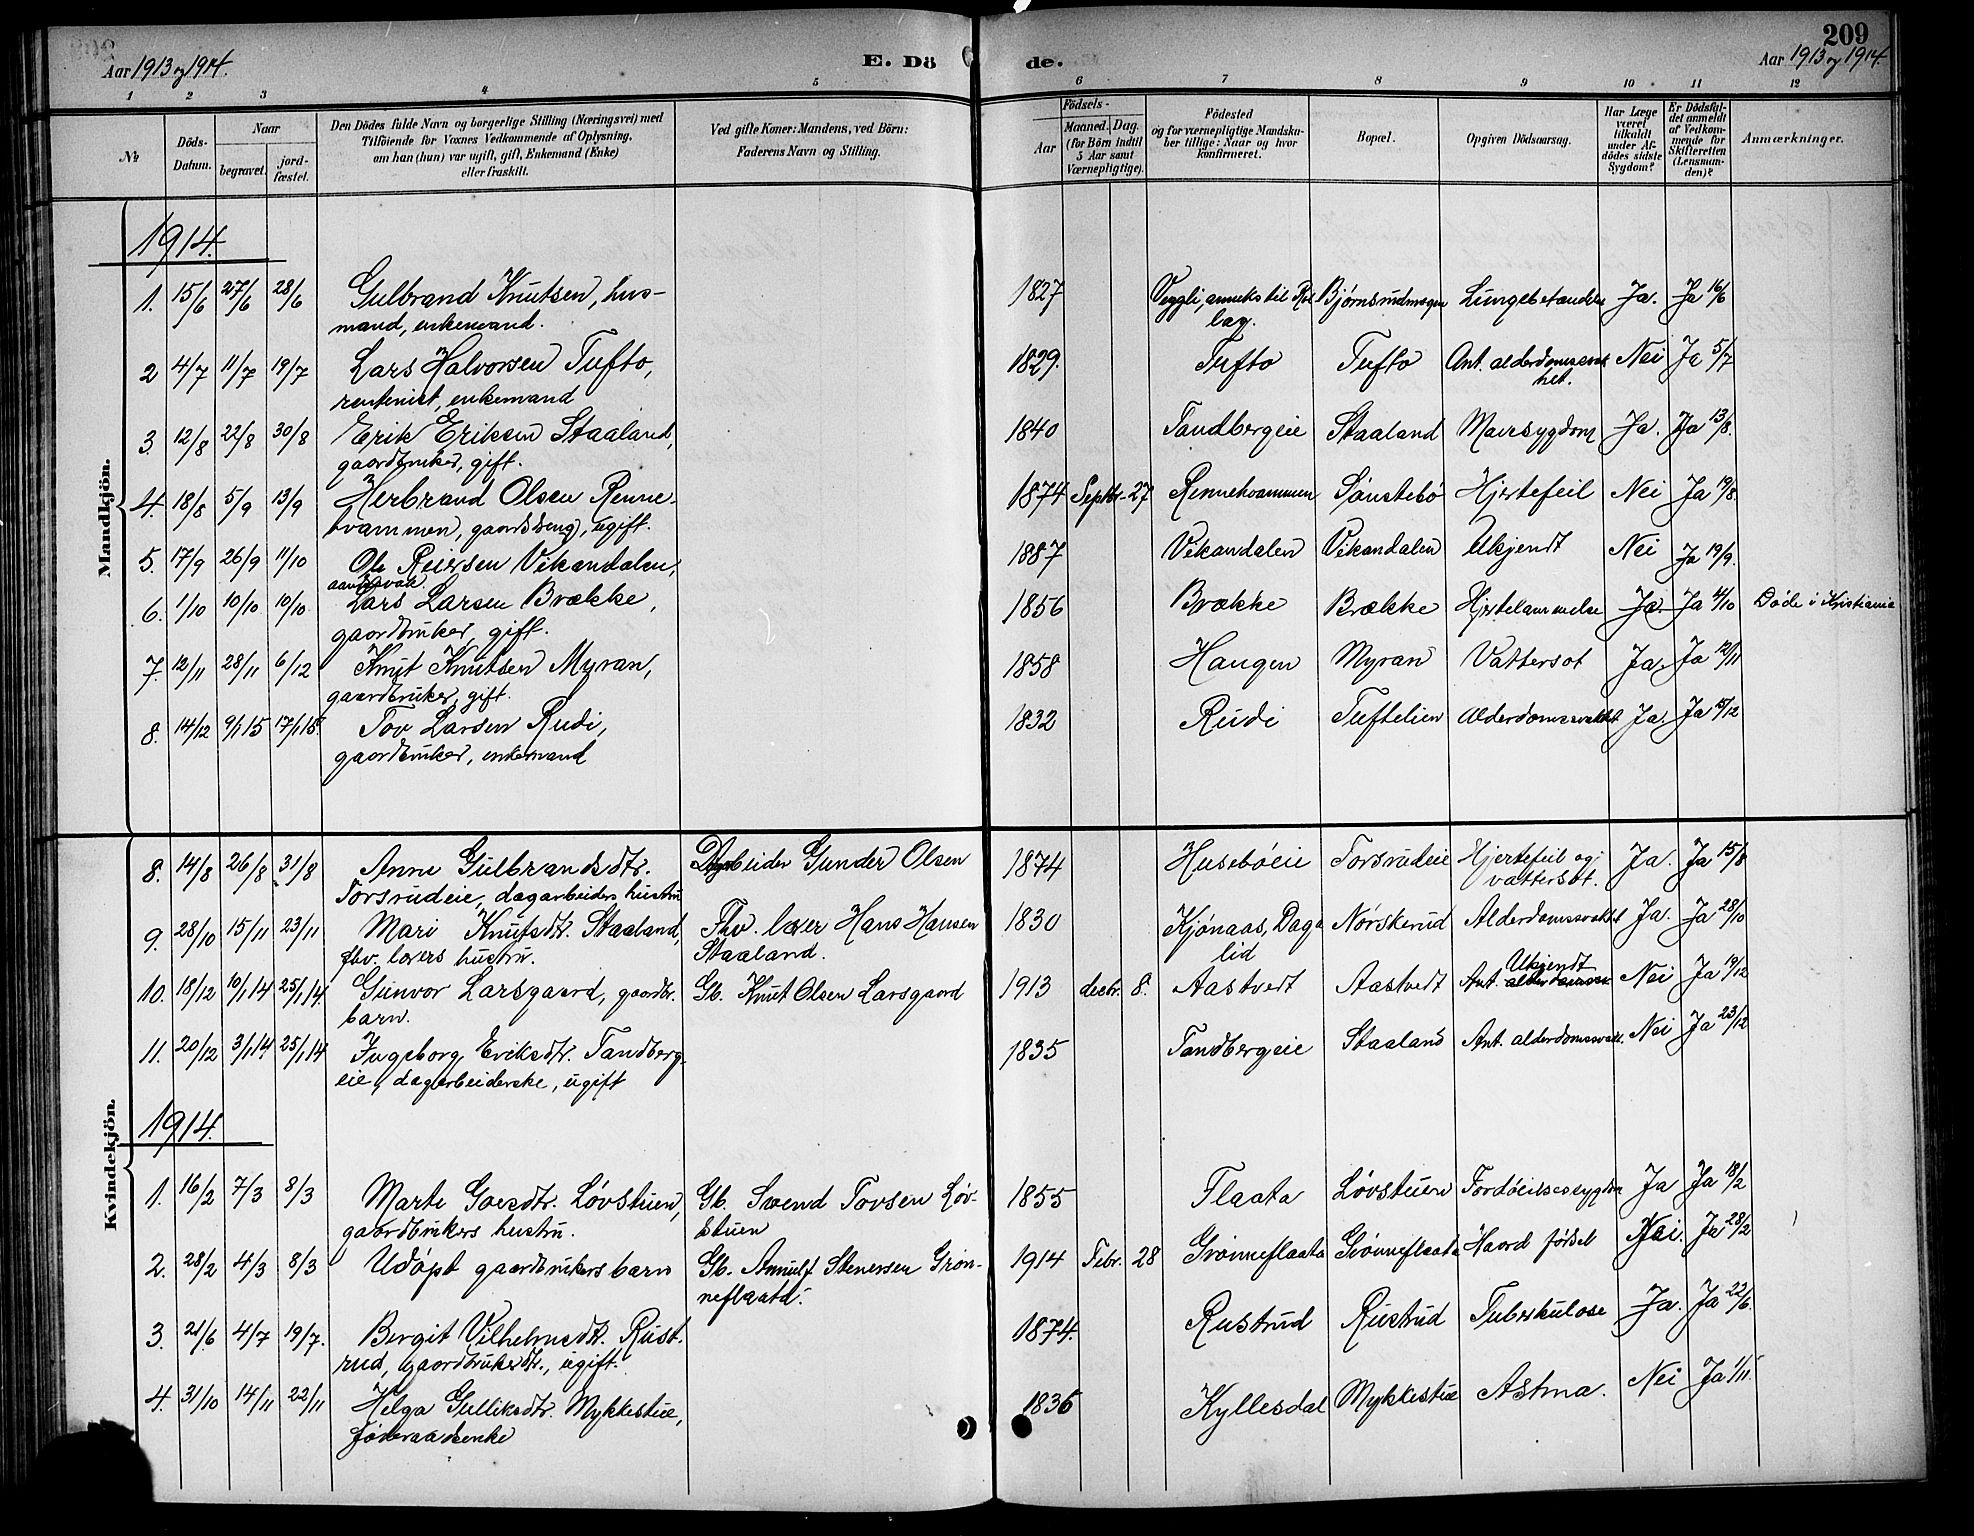 209
Aar 1913 og 1914.
E. Dö
de.
Aar 1913 og 1914.
1 2 3 4 5 6 7 8 9 10 11 12
No
Döds-Datum.
Naar
begravet.
jord-fæstet.
Den Dödes fulde Navn og borgerlige Stilling (Næringsvei) med
Tilföiende for Voxnes Vedkommende af Oplysning,
om han (hun) var ugift, gift, Enkemand (Enke)
eller fraskilt.
Ved gifte Koner: Mandens, ved Börn:
Faderens Navn og Stilling.
Födsels-
Aar
Maaned. Dag.
(for Börn indtil
5 Aar samt
Værnepligtige).
Födested
og for værnepligtige Mandska-
ber tillige: Naar og hvor
konfirmeret.
Bopæl.
Opgiven Dödsaarsag.
Har Læge
været
tilkaldt
under Af-
dödes sidste
Sygdom?
Er Dödsfal-
det anmeldt
af Vedkom-
mende for
Skifteretten
(Lensman-
den)?
Anmærkninger.
Mandkjön.
1914.
1. 15/6 27/6 28/6 Gulbrand Knutsen, hus- 1827 Veggli, anneks til Rol Bjørnsrudmogen Lungebetændelse Ja. Ja 16/6
mand, enkemand. lag.
2 4/7 11/7 19/7 Lars Halvorsen Tufto, 1829. Tufto Tufto Ant. alderdomssvak Nei Ja 5/7
rentenist, enkemand het.
3. 12/8 22/8 30/8 Erik Eriksen Staaland, 1840 Tandbergeie Staaland Mavesygdom Ja. Ja 13/8.
gaardbruker, gift.
4. 18/8 5/9 13/9 Herbrand Olsen Renne- 1874 Septbr. 27 Rennekvammen Sønstebø Hjertefeil Nei Ja 19/8
kvammen, gaardsdreng, ugift.
5. 17/9 26/9 11/10 Ole Reiersen Vikandalen, 1887 Vikandalen Vikandalen Ukjendt Nei Ja 19/9.
6. 1/10 10/10 10/10 Lars Larsen Brække, 1856 Brække Brække Hjertelammelse Ja. Ja 4/10 Døde i Kristiania
gaardbruker, gift.
7. 12/11 28/11 6/12 Knut Knutsen Myran, 1858 Haugen Myran Vattersot Ja. Ja 12/11
gaardbruker, gift.
8. 14/12 9/1 15 17/1 15. Tov Larsen Rudi, 1832 Rudi Tuftelien Alderdomssvakhet Ja. Ja 15/12
gaardbruker, enkemand
Kvindekjön.
8. 14/8 26/8 31/8 Anne Gulbrandsdtr. Dagarbeider Gunder Olsen 1874 Husebøeie Forsrudeie Hjertefeil og Ja. Ja 15/8
Forsrudeie, dagarbeiders hustru vattersot.
9. 28/10 15/11 23/11 Mari Knutsdtr. Staaland, Fhv. lærer Hans Hansen 1830 Kjønaas, Daga Nørskerud Alderdomssvakhet Ja. Ja 28/10
fhv. lærers hustru. Staaland. lid
10. 18/12 10/1 14 25/1 14. Gunvor Larsgaard, gaardbr. Gb. Knut Olsen Larsgaard 1913 decbr. 8. Aastvedt Aastvedt Ukjendt Nei Ja 19/12
barn.
11. 20/12 3/1 14. 25/1 14 Ingeborg Eriksdtr. Tandberg- 1835 Tandbergeie Staaland Ant. alderdomssvakh. Nei Ja 23/12
eie, dagarbeiderske, ugift
1914.
1. 16/2 7/3 8/3 Marte Goesdtr. Løvstuen, Gb. Svend Tovsen Løv- 1855 Flaata Løvstuen Fordøielsessygdom Ja Ja 18/2
gaardbrukers hustru. stuen
2. 28/2 4/3 8/3 Udøpt gaardbrukers barn Gb. Arnulf Stenersen Grøn- 1914 Febr. 28 Grønneflaata Grønneflaata Haard fødsel Nei. Ja 28/2
neflaata.
3. 21/6 4/7 19/7. Bergit Vilhelmsdtr. Rust- 1874. Rustrud Rustrud Tuberkulose Ja. Ja 22/6.
rud, gaardbrukerdtr., ugift.
4. 31/10 14/11 22/11 Helga Gulliksdtr. Mykkestue, 1836 Kyllesdal Mykkestue Astma. Nei Ja 1/11.
føderaadsenke